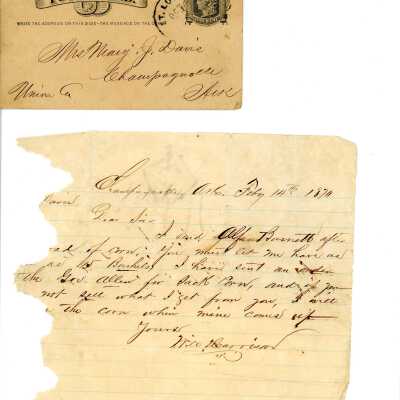 WRITE THE ADDRESS ON THIS SIDE - THE MESSAGE ON THE OTHER
ST. LO
Mrs Mary J. Davis
Champagnolle
Union Co
Ark
Ark. Feby 14th 1874
Dear Sir
I send Alfred Barnett after
ad of corn, you must let me have as
as 15 Bushels I have sent an order
the Geo. Allen for Sack Corn, and if you
not sell what I get from you, I will
the corn when mine comes up
Yours
Harrison